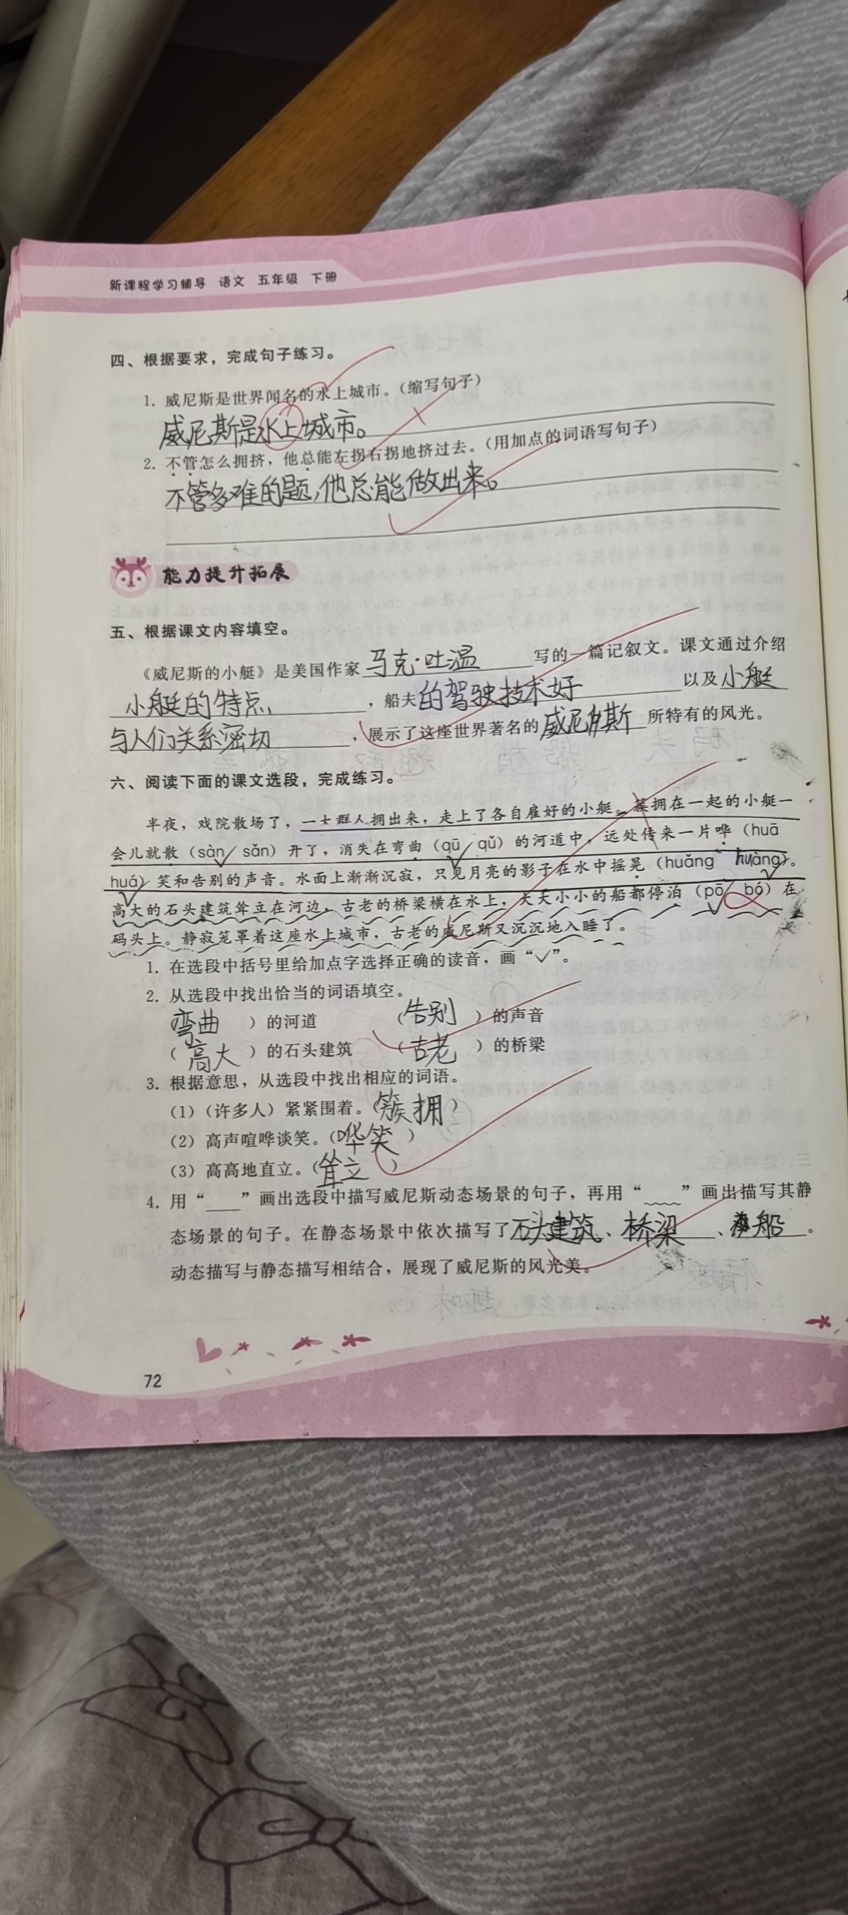 新课程学习辅导 语文 五年级 下册
四、根据要求，完成句子练习。
1. 威尼斯是世界闻名的水上城市。（缩写句子）
威尼斯是水上城市。
2. 不管怎么拥挤，他总能左拐右拐地挤过去。（用加点的词语写句子）
不管多难的题，他总能做出来。
能力提升拓展
五、根据课文内容填空。
《威尼斯的小艇》是美国作家马克·吐温写的一篇记叙文。课文通过介绍
小艇的特点，船夫的驾驶技术好以及小艇
与人们关系密切，展示了这座世界著名的威尼斯所特有的风光。
六、阅读下面的课文选段，完成练习。
半夜，戏院散场了，一大群人拥出来，走上了各自雇好的小艇。簇拥在一起的小艇一
会儿就散（sàn√ sǎn）开了，消失在弯曲（qū√ qǔ）的河道中，远处传来一片哗（huā
huá√）笑和告别的声音。水面上渐渐沉寂，只见月亮的影子在水中摇晃（huǎng huàng√）。
高大的石头建筑耸立在河边，古老的桥梁横在水上，大大小小的船都停泊（pō√ bó）在
码头上。静寂笼罩着这座水上城市，古老的威尼斯又沉沉地入睡了。
1. 在选段中括号里给加点字选择正确的读音，画“√”。
2. 从选段中找出恰当的词语填空。
弯曲 ）的河道 （告别 ）的声音
（ 高大 ）的石头建筑 （古老 ）的桥梁
3. 根据意思，从选段中找出相应的词语。
（1）（许多人）紧紧围着。（簇拥）
（2）高声喧哗谈笑。（哗笑 ）
（3）高高地直立。（耸立 ）
4. 用“___”画出选段中描写威尼斯动态场景的句子，再用“﹏﹏”画出描写其静
态场景的句子。在静态场景中依次描写了石头建筑、桥梁、船。
动态描写与静态描写相结合，展现了威尼斯的风光美。
72